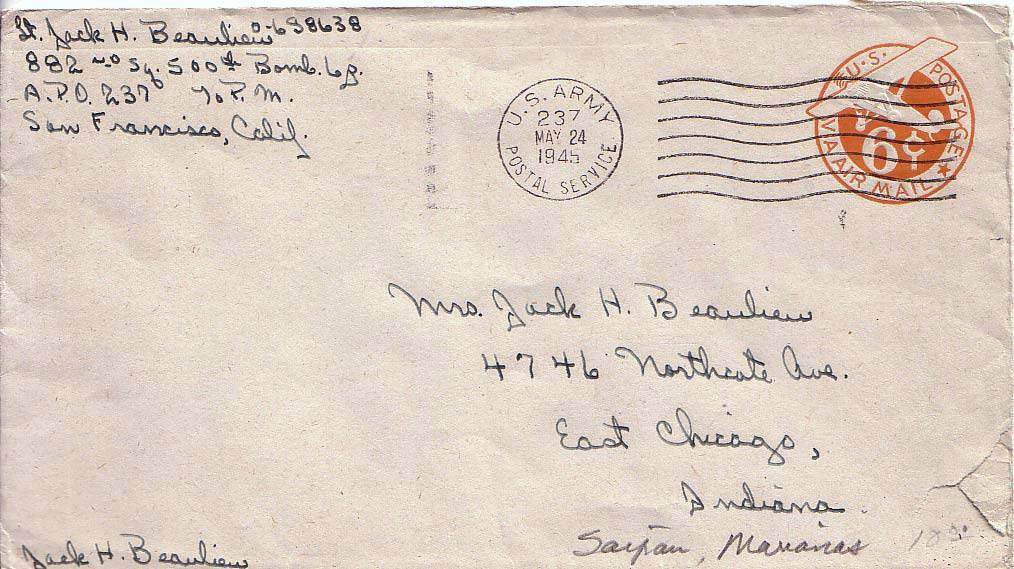 Lt. Jack H. Beaulieu O-698638
882 nd Sq. 500th Bomb. Gp.
A.P.O. 237 % P.M.
San Francisco, Calif.
U.S. ARMY
237
MAY 24
1945
POSTAL SERVICE
U.S. POSTAGE
6¢
VIA AIR MAIL
Mrs. Jack H. Beaulieu
4746 Northcote Ave.
East Chicago,
Indiana
Saipan, Marianas
Jack H. Beaulieu